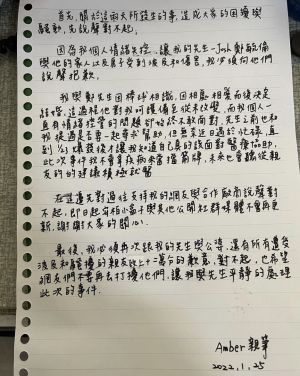 首先,關於這兩天所發生的事,造成大眾的困擾與
騷動,先說聲對不起。
因為我個人情緒失控,讓我的先生-Jack鄭敏倫
與他的家人以及員子受到波及和傷害,我必須向他們
說聲抱歉。
我與鄭先生因棒球相識,因相處相愛而後決定
結婚,這過程他對我呵護備至從未改變,而我個人一
直有情緒控管的問題卻始終不敢面對,先生之前也和
我提過是否要一起尋求幫助,但無奈近日過於忙碌,直
到爆發後才讓我知道自己真的該面對醫療協助。
此次事件我不會拿疾病來當擋箭牌,未來也會聽從親
友的的建議積極就醫
在這邊先對過往支持我的網友與合作廠商說聲對
不起,即日起布柏小孟子與其他公開社群媒體不會再更
新,謝謝大家的關心。
最後,我必須再次跟我的先生與公婆,還有所有遭受
波及和騷擾的親友致上十二萬分的歉意,對不起,也希望
網友們不要再去打擾他們,讓我與先生平靜的處理
此次的事件。
Amber 親筆
2022.1.25